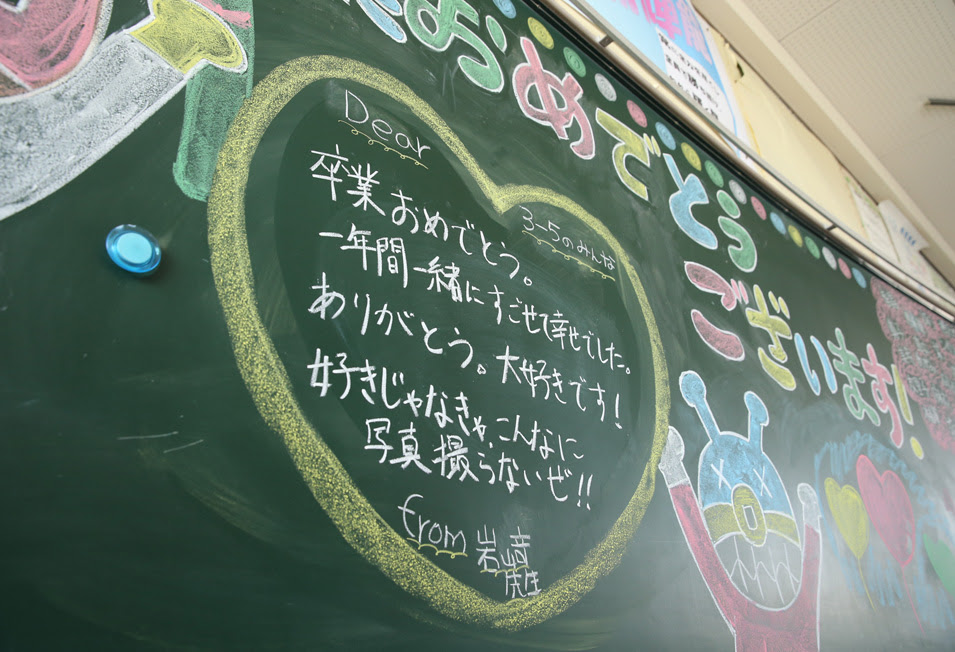 おめでとう
ございます!
Dear
3-5のみんな
卒業おめでとう。
一年間一緒にすごせて幸せでした。
ありがとう。大好きです!
好きじゃなきゃ、こんなに
写真撮らないぜ!!
from 岩崎
先生